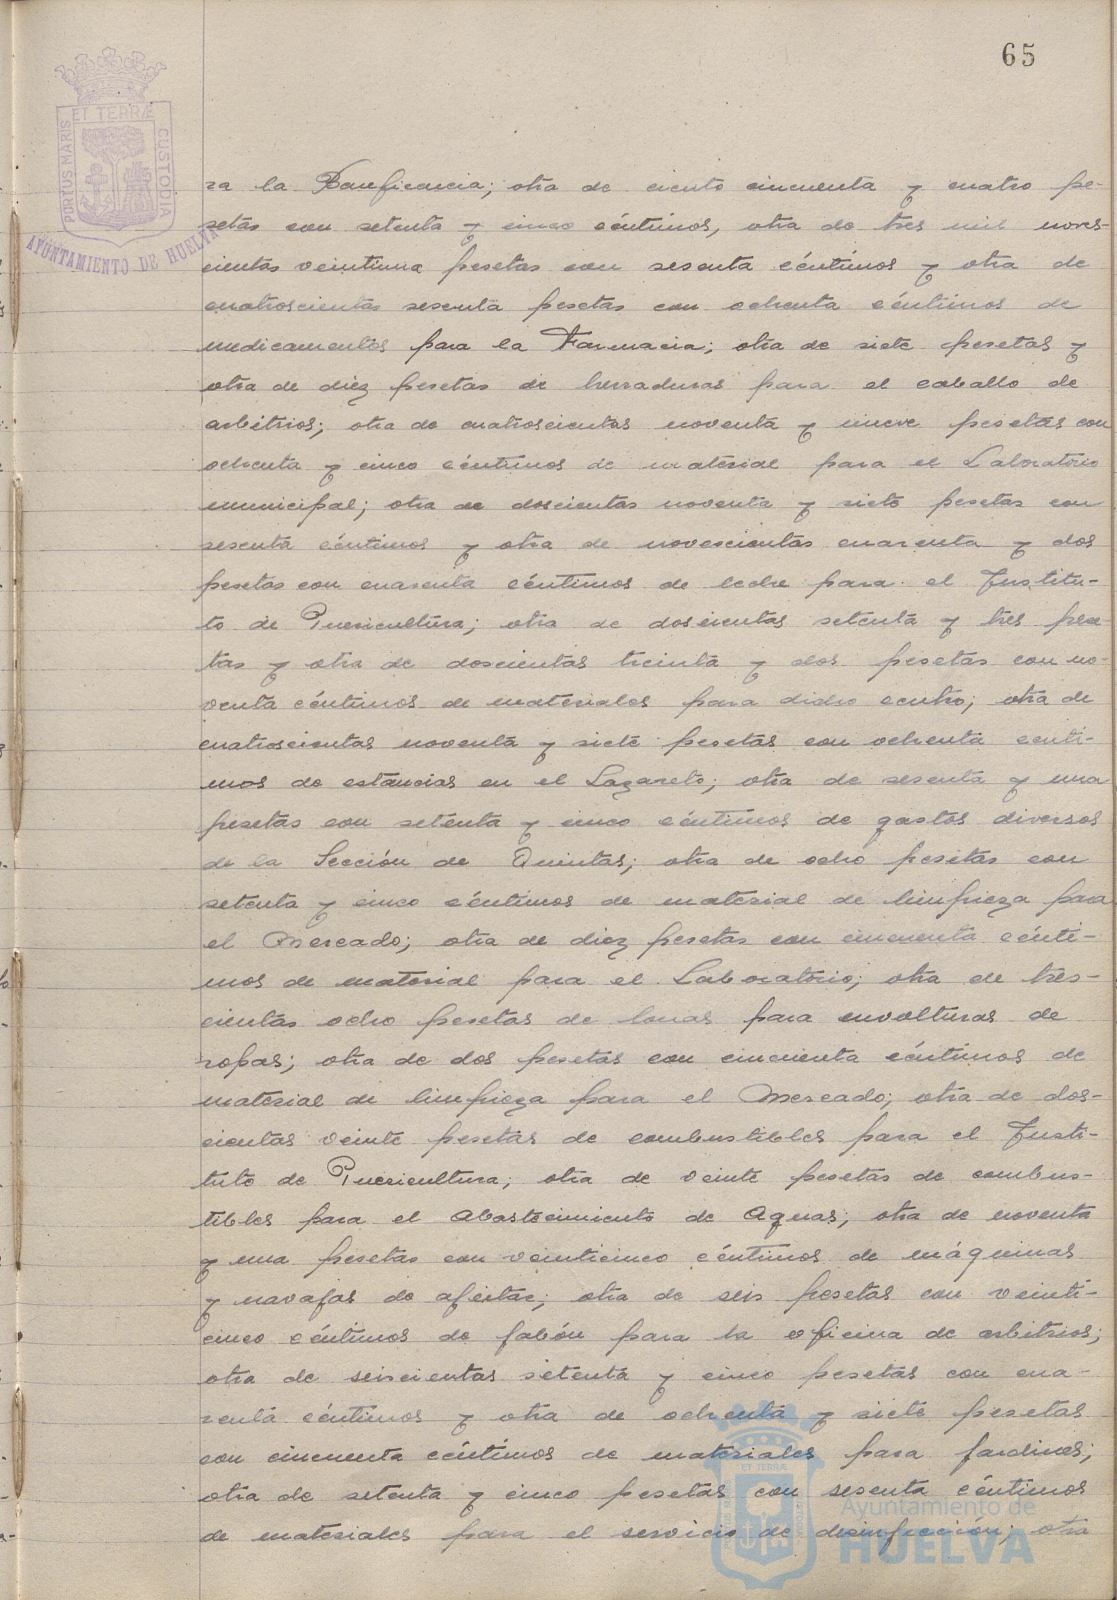 65
PORTUS MARIS ET TERRÆ CUSTODIA
AYUNTAMIENTO DE HUELVA
ra la Beneficencia; otra de ciento cincuenta y cuatro pe-
setas con setenta y cinco céntimos, otra de tres mil noves-
cientas veintiuna pesetas con sesenta céntimos y otra de
cuatroscientas sesenta pesetas con ochenta céntimos de
medicamentos para la Farmacia; otra de siete pesetas y
otra de diez pesetas de herraduras para el caballo de
arbitrios; otra de cuatroscientas noventa y nueve pesetas con
ochenta y cinco céntimos de material para el Laboratorio
municipal; otra de doscientas noventa y siete pesetas con
sesenta céntimos y otra de novescientas cuarenta y dos
pesetas con cuarenta céntimos de leche para el Institu-
to de Puericultura; otra de doscientas setenta y tres pese-
tas y otra de doscientas treinta y dos pesetas con no-
venta céntimos de materiales para dicho centro; otra de
cuatroscientas noventa y siete pesetas con ochenta cénti-
mos de estancias en el Lazareto; otra de sesenta y una
pesetas con setenta y cinco céntimos de gastos diversos
de la Sección de Quintas; otra de ocho pesetas con
setenta y cinco céntimos de material de limpieza para
el Mercado; otra de diez pesetas con cincuenta cénti-
mos de material para el Laboratorio; otra de tres-
cientas ocho pesetas de lonas para envolturas de
ropas; otra de dos pesetas con cincuenta céntimos de
material de limpieza para el Mercado; otra de dos-
cientas veinte pesetas de combustibles para el Insti-
tuto de Puericultura; otra de veinte pesetas de combus-
tibles para el Abastecimiento de Aguas; otra de noventa
y una pesetas con veinticinco céntimos de máquinas
y navajas de afeitar; otra de seis pesetas con veinti-
cinco céntimos de jabón para la oficina de arbitrios;
otra de seiscientas setenta y cinco pesetas con cua-
renta céntimos y otra de ochenta y siete pesetas
con cincuenta céntimos de materiales para jardines;
otra de setenta y cinco pesetas con sesenta céntimos
de materiales para el servicio de desinfección; otra
Ayuntamiento de
HUELVA